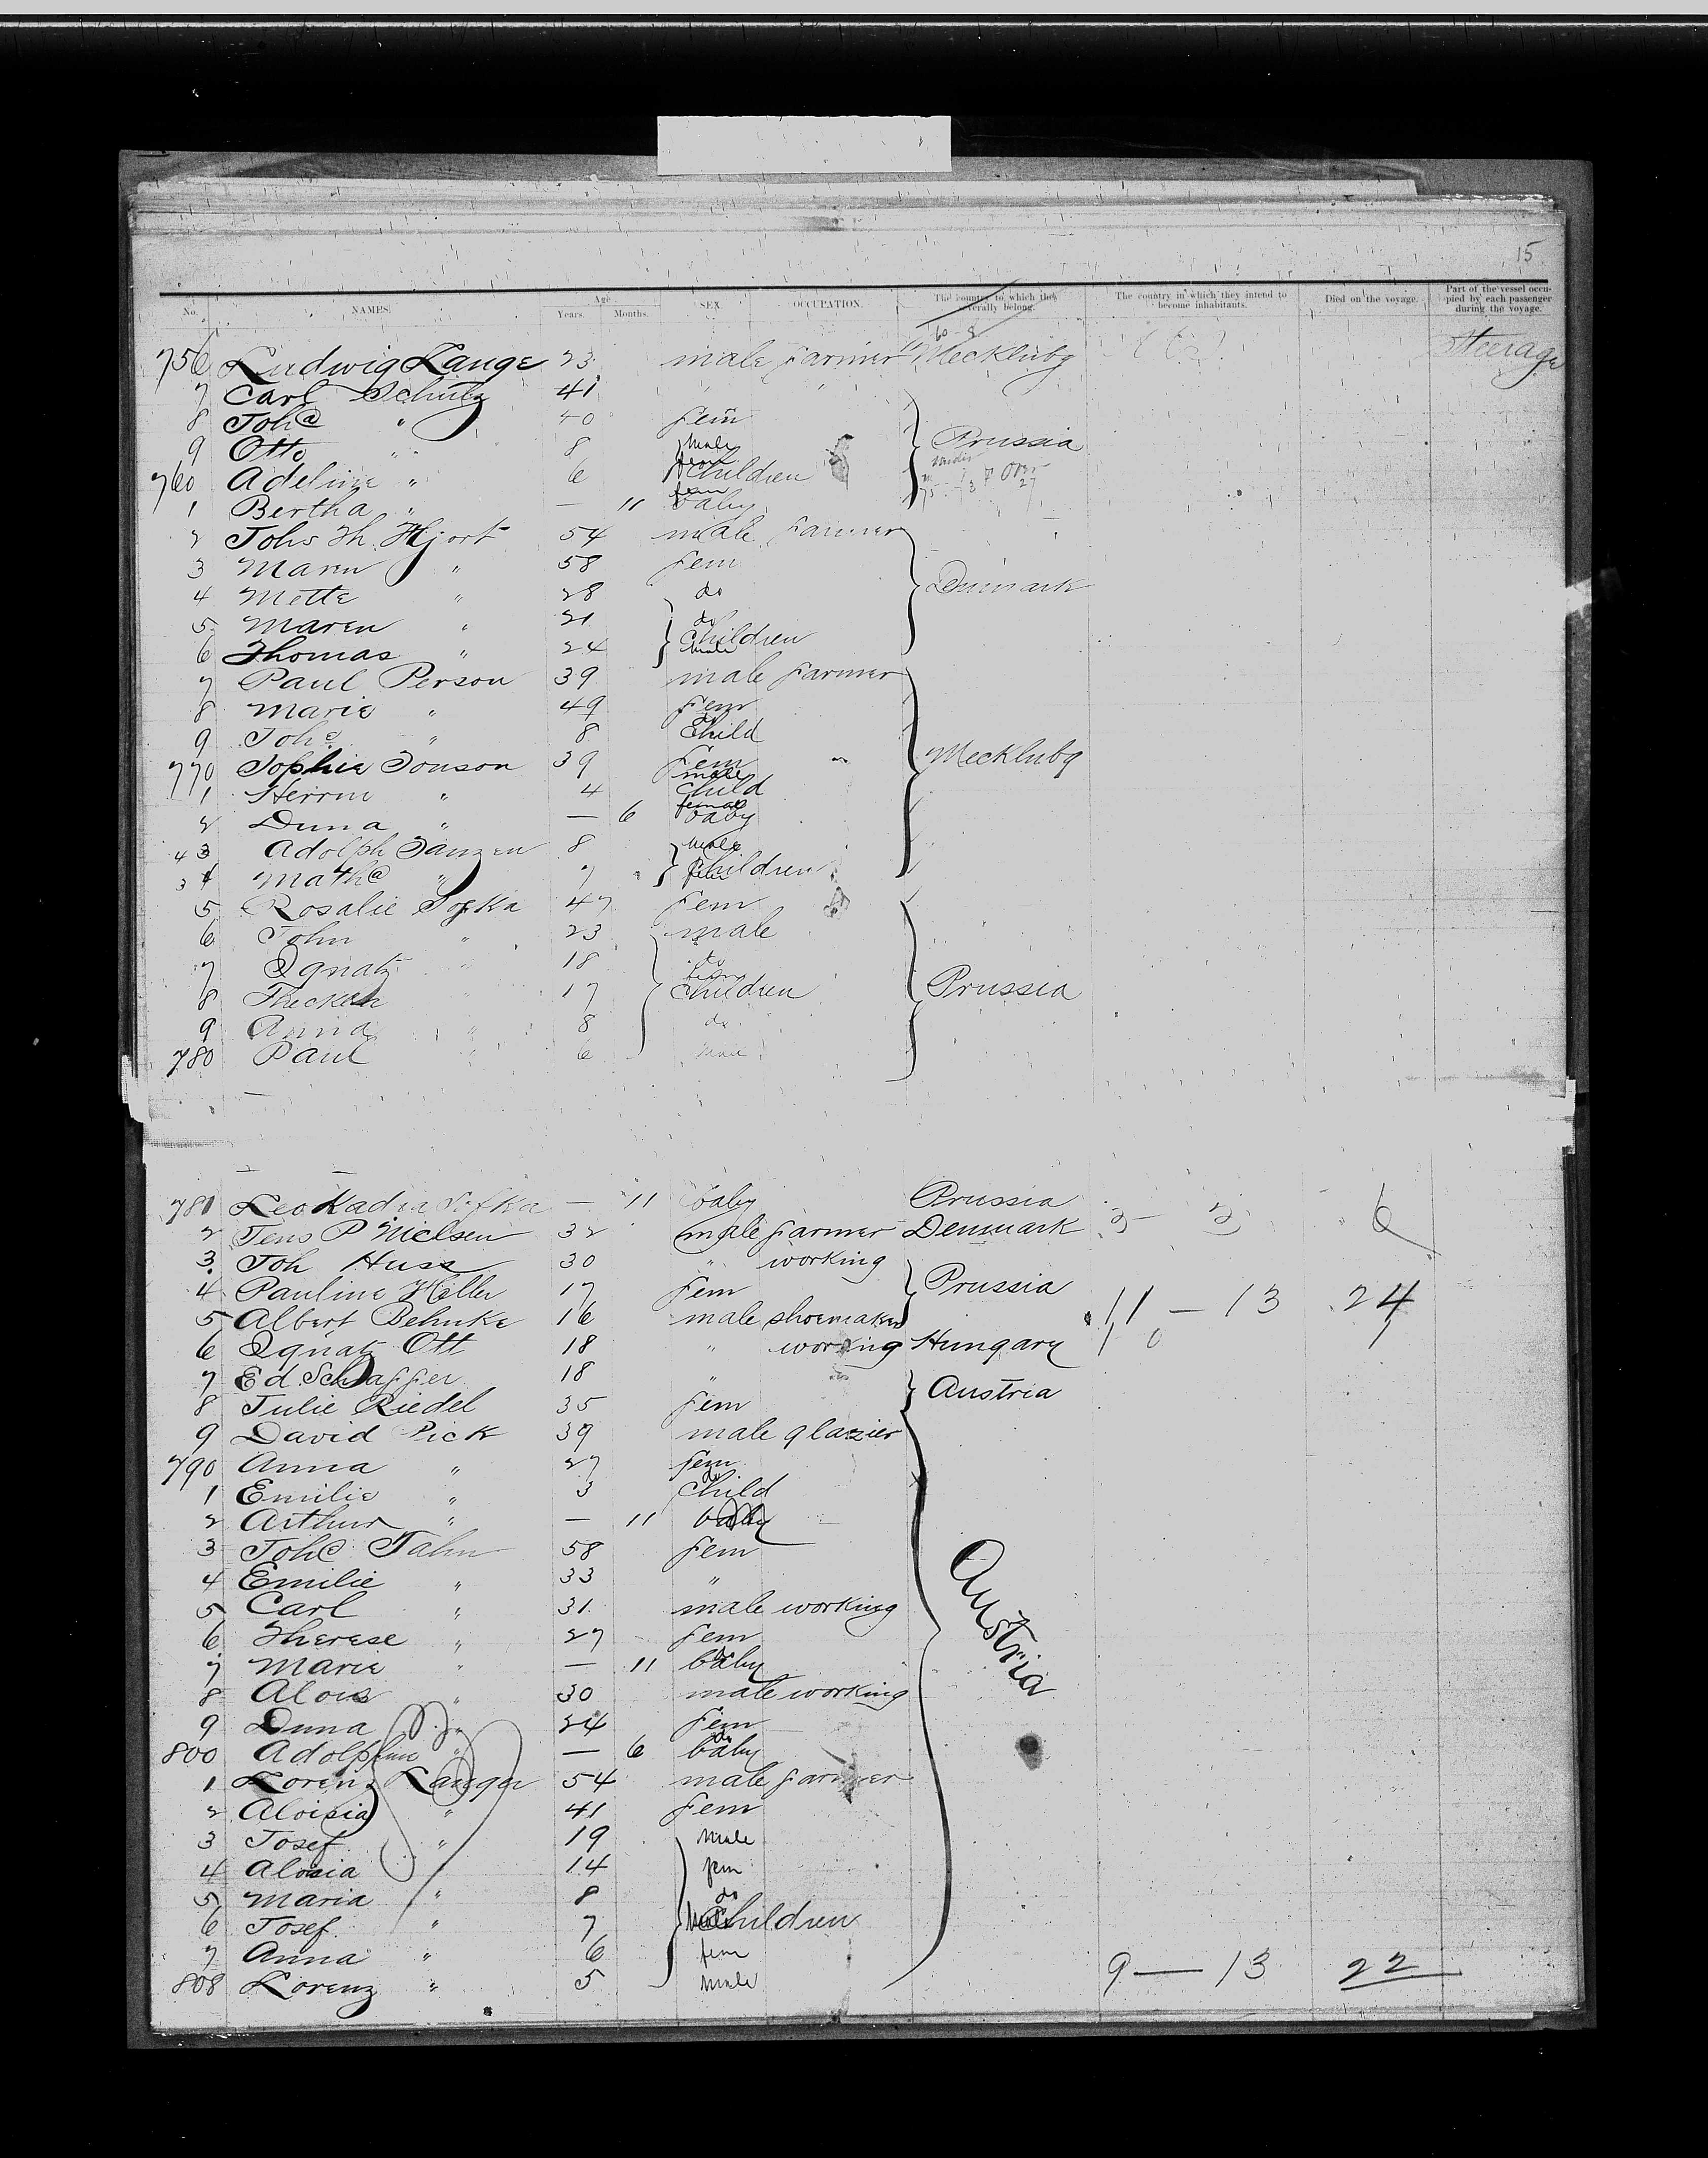 15
No. NAMES. Age Years. Months. SEX. OCCUPATION. The country to which they severally belong. The country in which they intend to become inhabitants. Died on the voyage. Part of the vessel occupied by each passenger during the voyage.
756 Ludwig Lange 23 male farmer Mecklubg Steerage
7 Carl Schultz 41 "
8 Joh@ " 40 fem
9 Otto " 8 male Prussia
760 Adeline " 6 fem Children
1 Bertha " — 11 fem baby
2 Johs Th. Hjort 54 male farmer
3 Maren " 58 fem
4 Mette " 28 do Denmark
5 Maren " 21 do
6 Thomas " 24 male Children
7 Paul Person 39 male farmer
8 Marie " 49 fem
9 Johe " 8 do Child
770 Sophie Jonson 39 fem Mecklubg
1 Herrm " 4 male Child
2 Duna " — 6 female baby
43 Adolph Janzen 8 male
34 Math@ " 7 fem Children
5 Rosalie Sofka 47 fem
6 John " 23 male
7 Ignatz " 18 do
8 17 fem Children Prussia
9 Anna " 8 do
780 Paul " 6 male
781 Leokadia Sofka — 11 baby Prussia
2 Jens P Nielsen 32 male farmer Denmark 3 — 3 6
3. Joh Huss 30 " working
4 Pauline Heller 17 fem Prussia
5 Albert Behnke 16 male shoemaker 11 — 13 24
6 Ignatz Ott 18 " working Hungary 1 0 1
7 Ed. Schlaffer 18 "
8 Julie Riedel 35 fem Austria
9 David Pick 39 male glazier
790 Anna " 27 fem
1 Emilie " 3 do Child
2 Arthur " — 11 baby
3 Joh@ Jahn 58 fem
4 Emilie " 33 "
5 Carl " 31 male working Austria
6 Therese " 27 fem
7 Marie " — 11 baby
8 Alois " 30 male working
9 Duna " 24 fem
800 Adolphine " — 6 do baby
1 Lorenz Langer 54 male farmer
2 Aloisia " 41 fem
3 Josef " 19 male
4 Alosia " 14 fem
5 Maria " 8 do
6 Josef " 7 male Children
7 Anna " 6 fem
808 Lorenz " 5 male 9 — 13 22